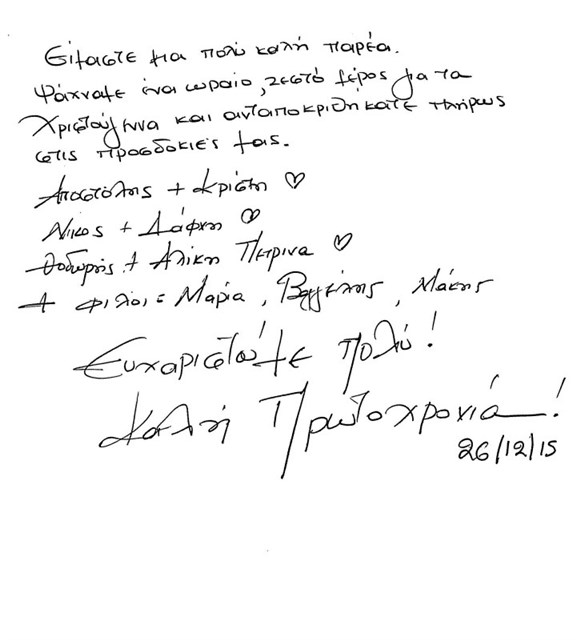 Είμαστε μια πολύ καλή παρέα.
Ψάχναμε ένα ωραίο, ζεστό μέρος για τα
Χριστούγεννα και ανταποκριθήκατε πλήρως
στις προσδοκίες μας.
Αποστόλης + Κρίστη ♡
Νίκος + Δάφνη ♡
Θοδωρής + Αλίκη Πετρινα ♡
+ φιλοι = Μαρία, Βαγγέλης, Μάκης
Ευχαριστούμε πολύ!
Καλή Πρωτοχρονιά!
26/12/15